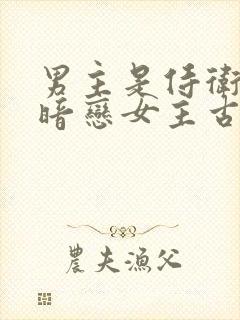 男主是侍衛
暗戀女主古
農夫漁父